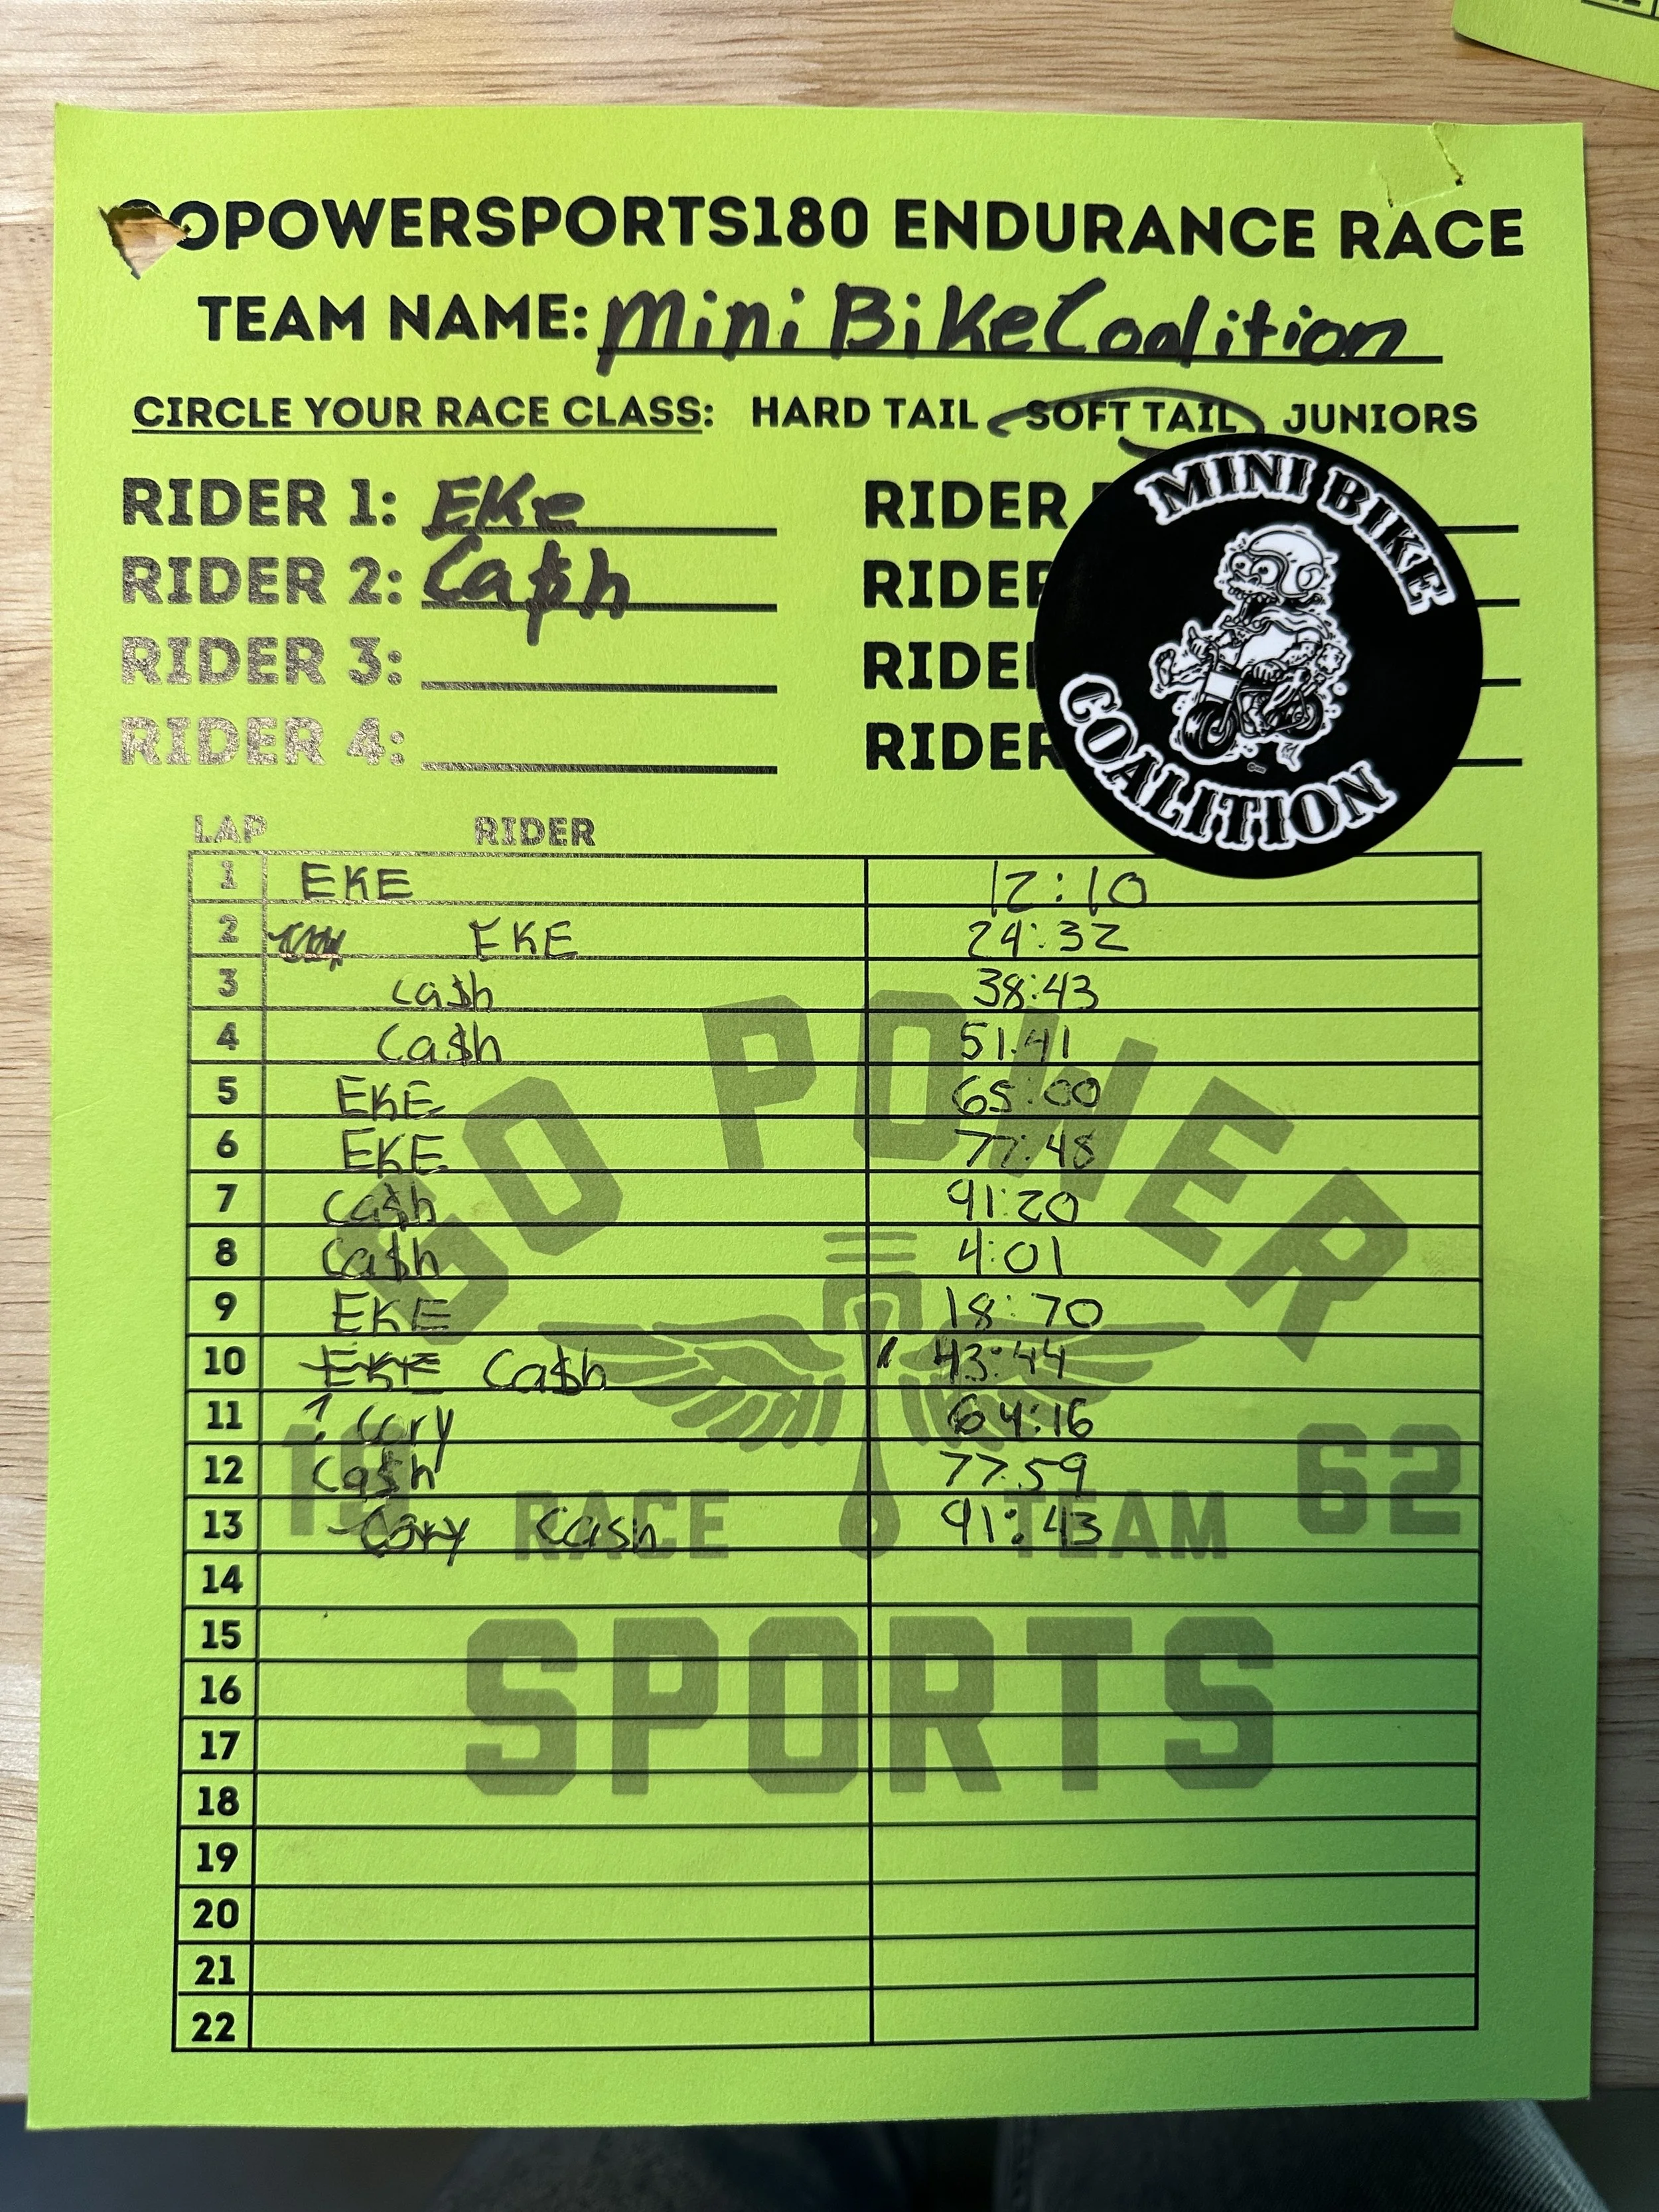 OPOWERSPORTS180 ENDURANCE RACE
TEAM NAME: Mini Bike Coalition
CIRCLE YOUR RACE CLASS: HARD TAIL SOFT TAIL JUNIORS
RIDER 1: EKe
RIDER 2: Ca$h
RIDER 3:
RIDER 4:
RIDER
RIDER
RIDER
RIDER
MINI BIKE
COALITION
LAP RIDER
1 EKE 12:10
2 EKE 24:32
3 Ca$h 38:43
4 Ca$h 51:41
5 EKE 65:00
6 EKE 77:48
7 Ca$h 91:20
8 Ca$h 4:01
9 EKE 18:70
10 EKE Ca$h 43:44
11 Cory 64:16
12 Ca$h 77:59
13 Cory Cash 91:43
14
15
16
17
18
19
20
21
22
GO POWER
19 62
RACE TEAM
SPORTS